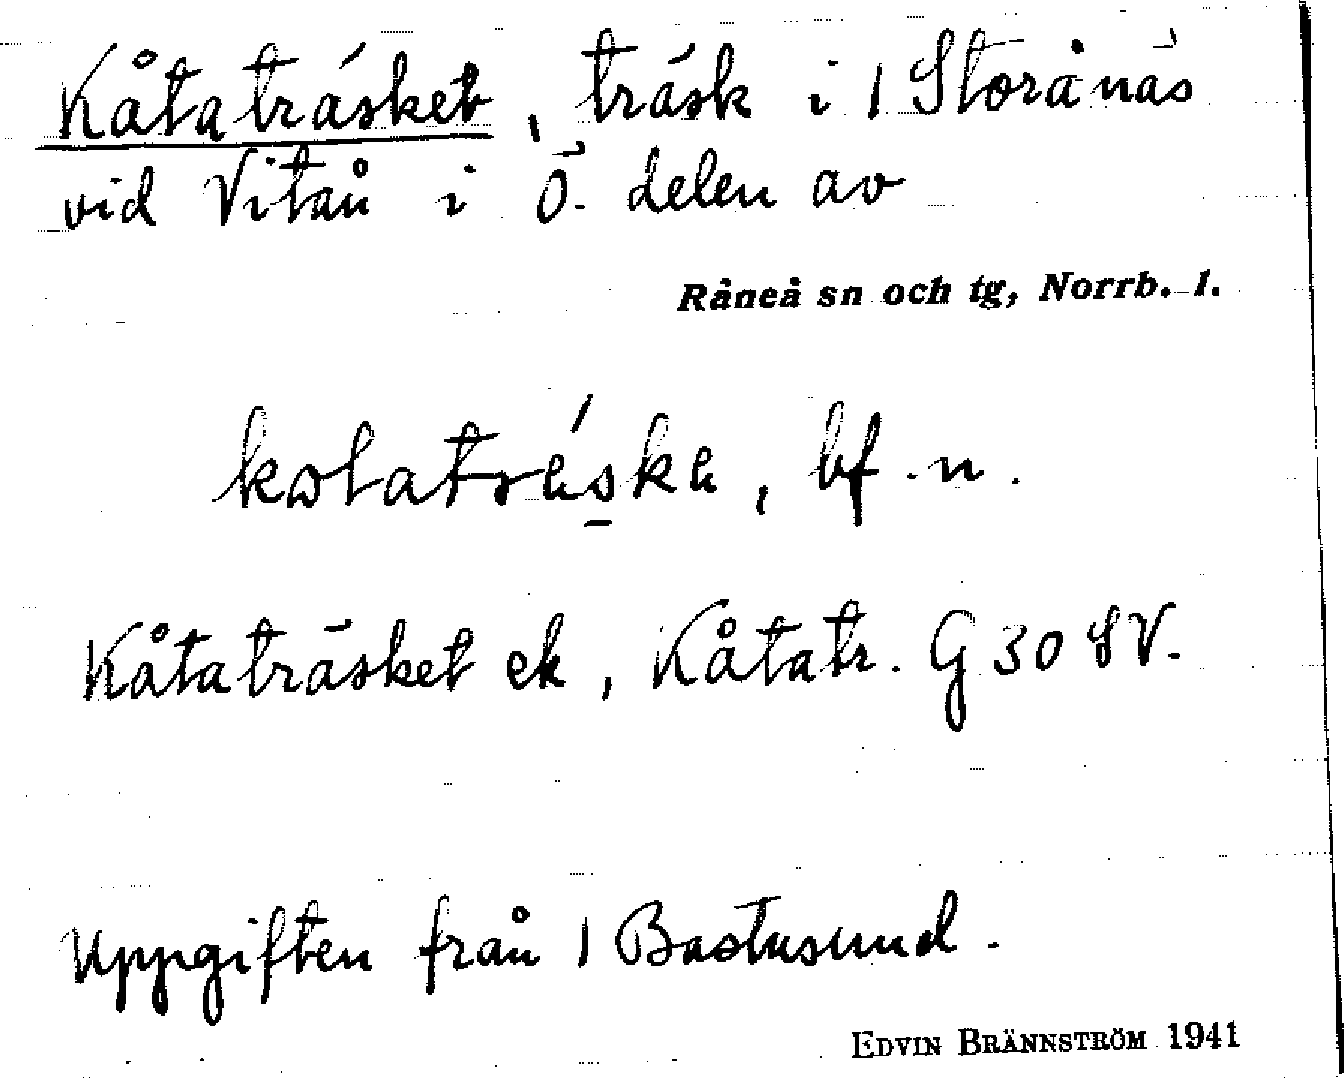 Kåtaträsket, träsk i 1 Storånäs
vid Vitån i Ö. delen av
Råneå sn och tg, Norrb. l.
bf. n.
Kåtaträsket ek, Kåtatr. G 30 SV.
Uppgiften från 1 Bastusund.
EDVIN BRÄNNSTRÖM 1941